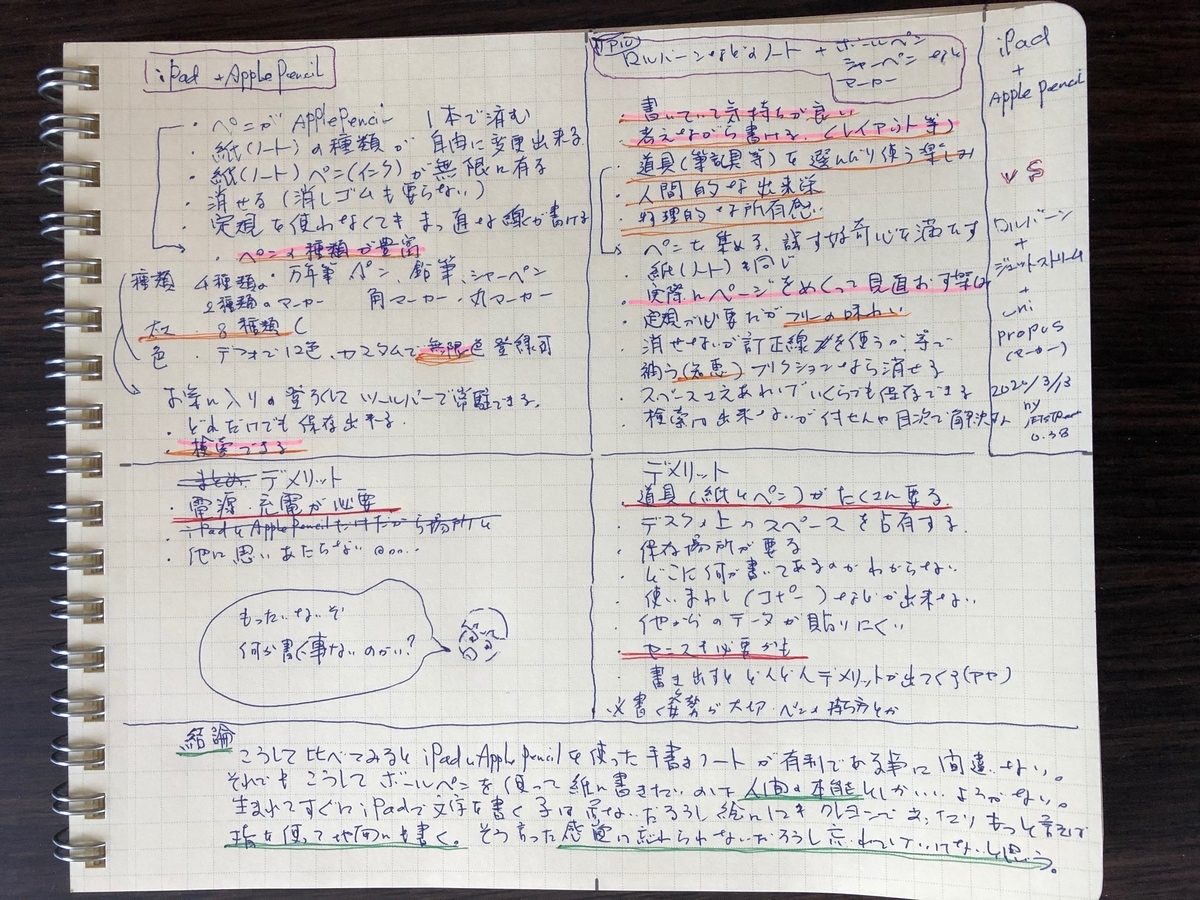 iPad + Apple Pencil
・ペンが ApplePencil 1本で済む
・紙(ノート)の種類が 自由に変更出来る
・紙(ノート)ペン(インク)が無限に有る
・消せる(消しゴムも要らない)
・定規を使わなくてもまっ直な線が書ける
・ペンの種類が豊富
種類 4種類の 万年筆ペン、鉛筆、シャーペン
2種類のマーカー 角マーカー・丸マーカー
太さ 8種類
色 デフォで12色、カスタムで無限色登録可
お気に入りの登ろくして ツールバーで常駐できる。
・どれだけでも保存出来る
・検索できる
ロルバーンなどのノート + ボールペン
シャーペン
マーカー
・書いていて気持ちが良い
・考えながら書ける(レイアウト等)
・道具(筆記具等)を選んだり使う楽しみ
・人間的な出来栄
・物理的な所有感
・ペンを集める、試す好奇心を満たす
・紙(ノート)も同じ
・実際にページをめくって見直おす楽しみ
・定規が必要だがフリーの味わい
・消せないが訂正線を使うか等で
補う(知恵) フリクションなら消せる
・スペースさえあればいくらでも保存できる
・検索は出来ないが付せんや目次で解決
iPad
+
Apple Pencil
VS
ロルバーン
+
ジェットストリーム
+
uni
propus
(マーカー)
2022/3/13
by
JETSTREAM
0.38
まとめ デメリット
・電源、充電が必要
・他に思いあたらない
もったいないぞ
何か書く事ないのかい?
デメリット
・道具(紙とペン)がたくさん要る
・デスクの上のスペースを占有する
・保存場所が要る
・どこに何が書いてあるのかわからない
・使いまわし(コピー)などが出来ない
・他からのデータが貼りにくい
・ケースも必要かも
・書き出すとどんどんデメリットが出てくる(アセ)
※書く姿勢が大切・ペンの持ち方とか
結論
こうして比べてみるとiPadとApple Pencilを使った手書きノートが有利である事に間違いない。
それでもこうしてボールペンを使って紙に書きたいのは人間の本能としかいいようがない。
生まれてすぐにiPadで文字を書く子は居ないだろうし絵にしてもクレヨンであったりもっと言えば
指を使って地面にも書く。そう言った感覚は忘れられないだろうし忘れていけないと思う。